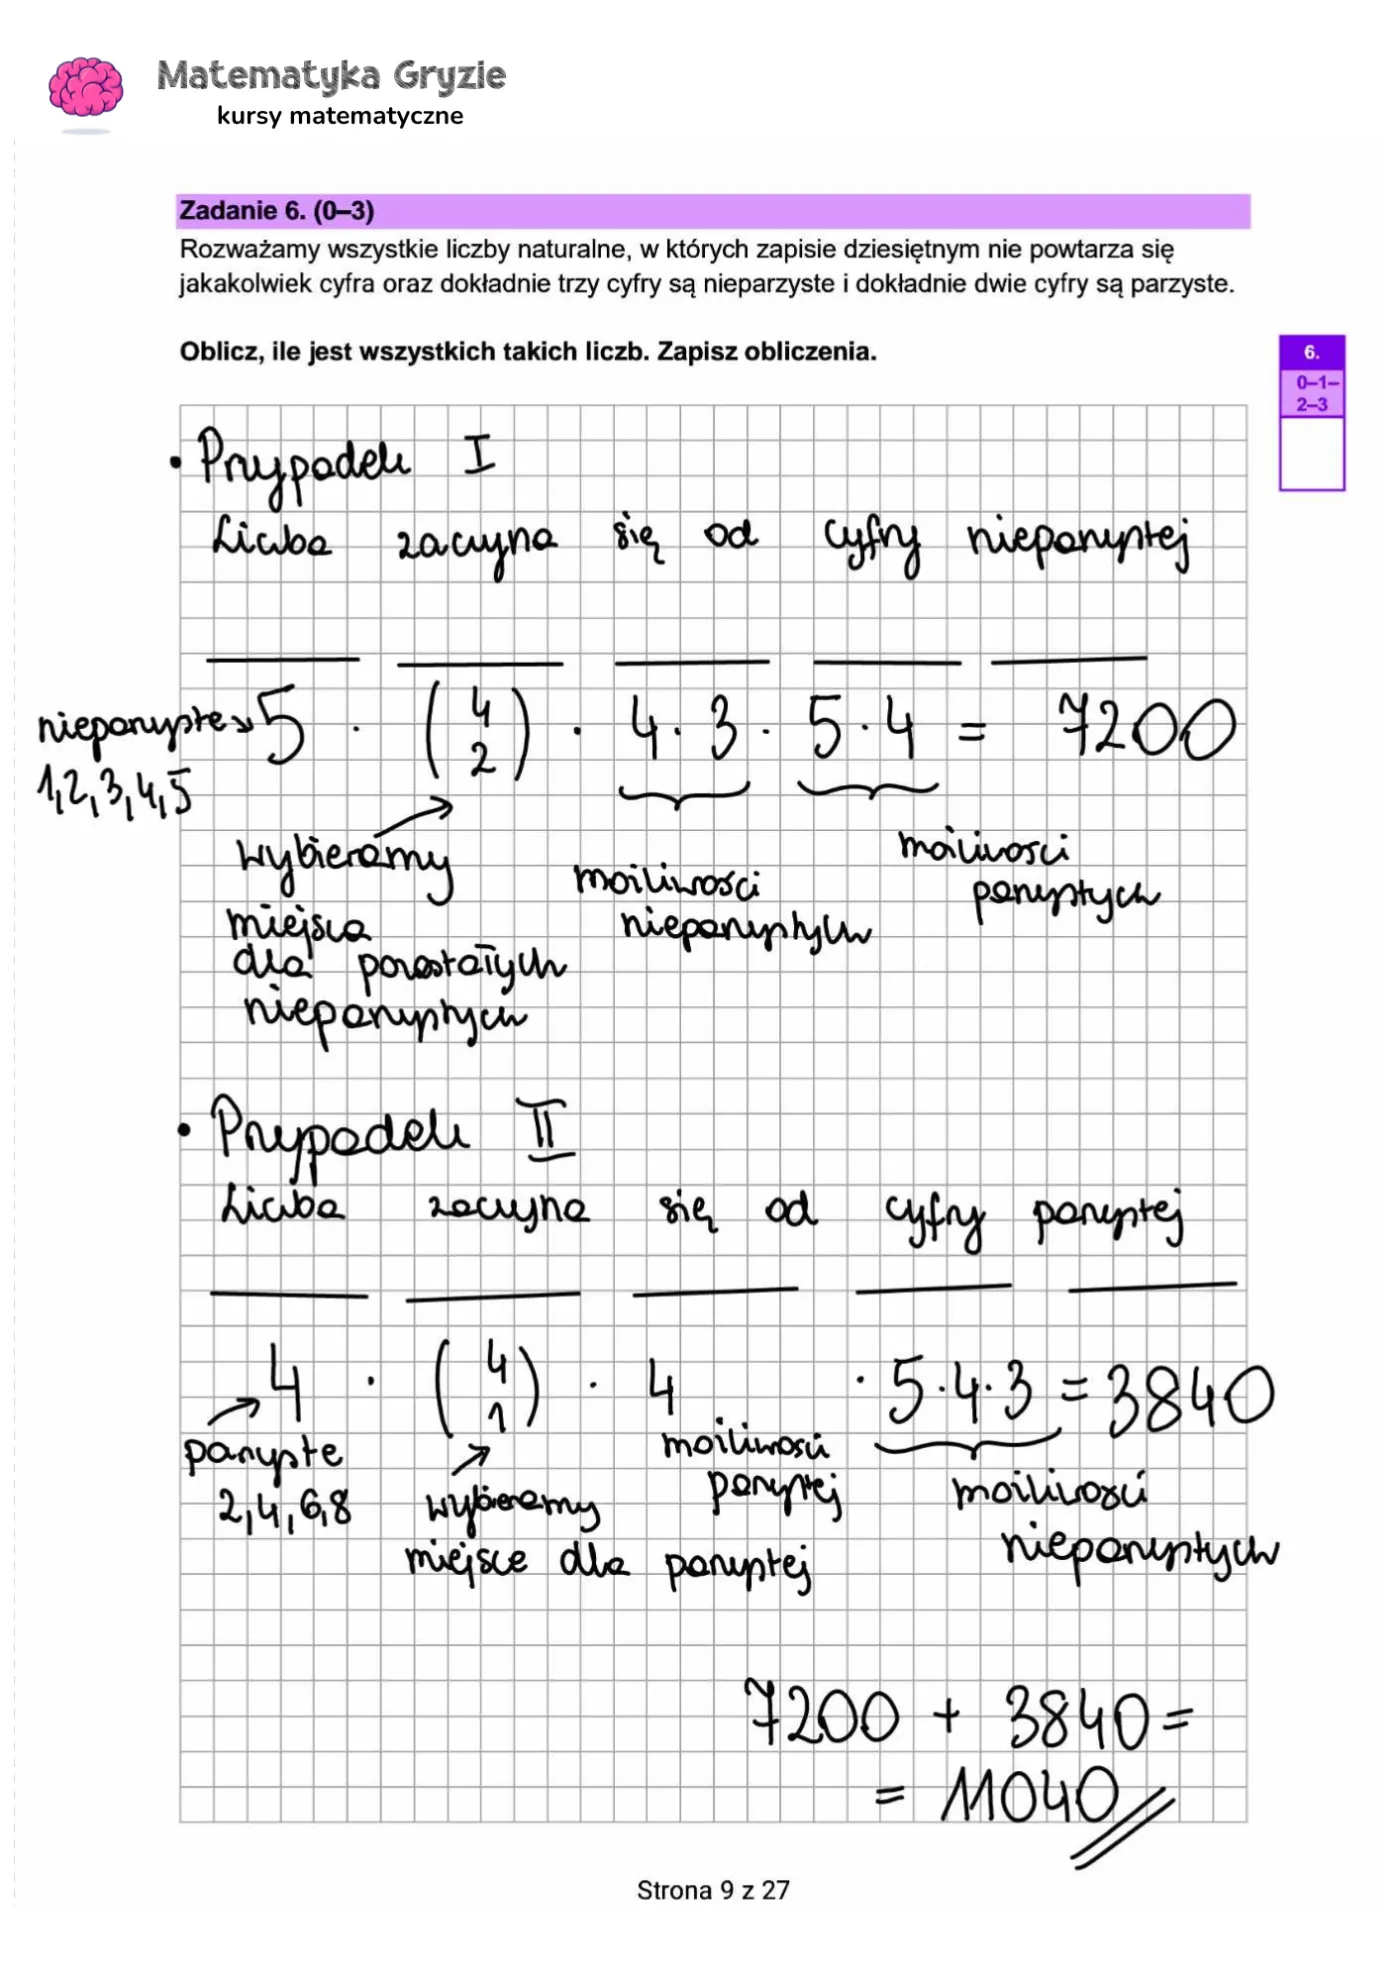 Matematyka Gryzie
kursy matematyczne
Zadanie 6. (0–3)
Rozważamy wszystkie liczby naturalne, w których zapisie dziesiętnym nie powtarza się
jakakolwiek cyfra oraz dokładnie trzy cyfry są nieparzyste i dokładnie dwie cyfry są parzyste.
Oblicz, ile jest wszystkich takich liczb. Zapisz obliczenia.
6.
0–1–
2–3
• Przypadek I
Liczba zaczyna się od cyfry nieparzystej
nieparzyste → 5 · (4 2) · 4 · 3 · 5 · 4 = 7200
1,2,3,4,5
wybieramy
miejsca
dla pozostałych
nieparzystych
możliwości
nieparzystych
możliwości
parzystych
• Przypadek II
Liczba zaczyna się od cyfry parzystej
4 · (4 1) · 4 · 5 · 4 · 3 = 3840
parzyste
2,4,6,8
wybieramy
miejsce dla parzystej
możliwości
parzystej
możliwości
nieparzystych
7200 + 3840 =
= 11040
Strona 9 z 27